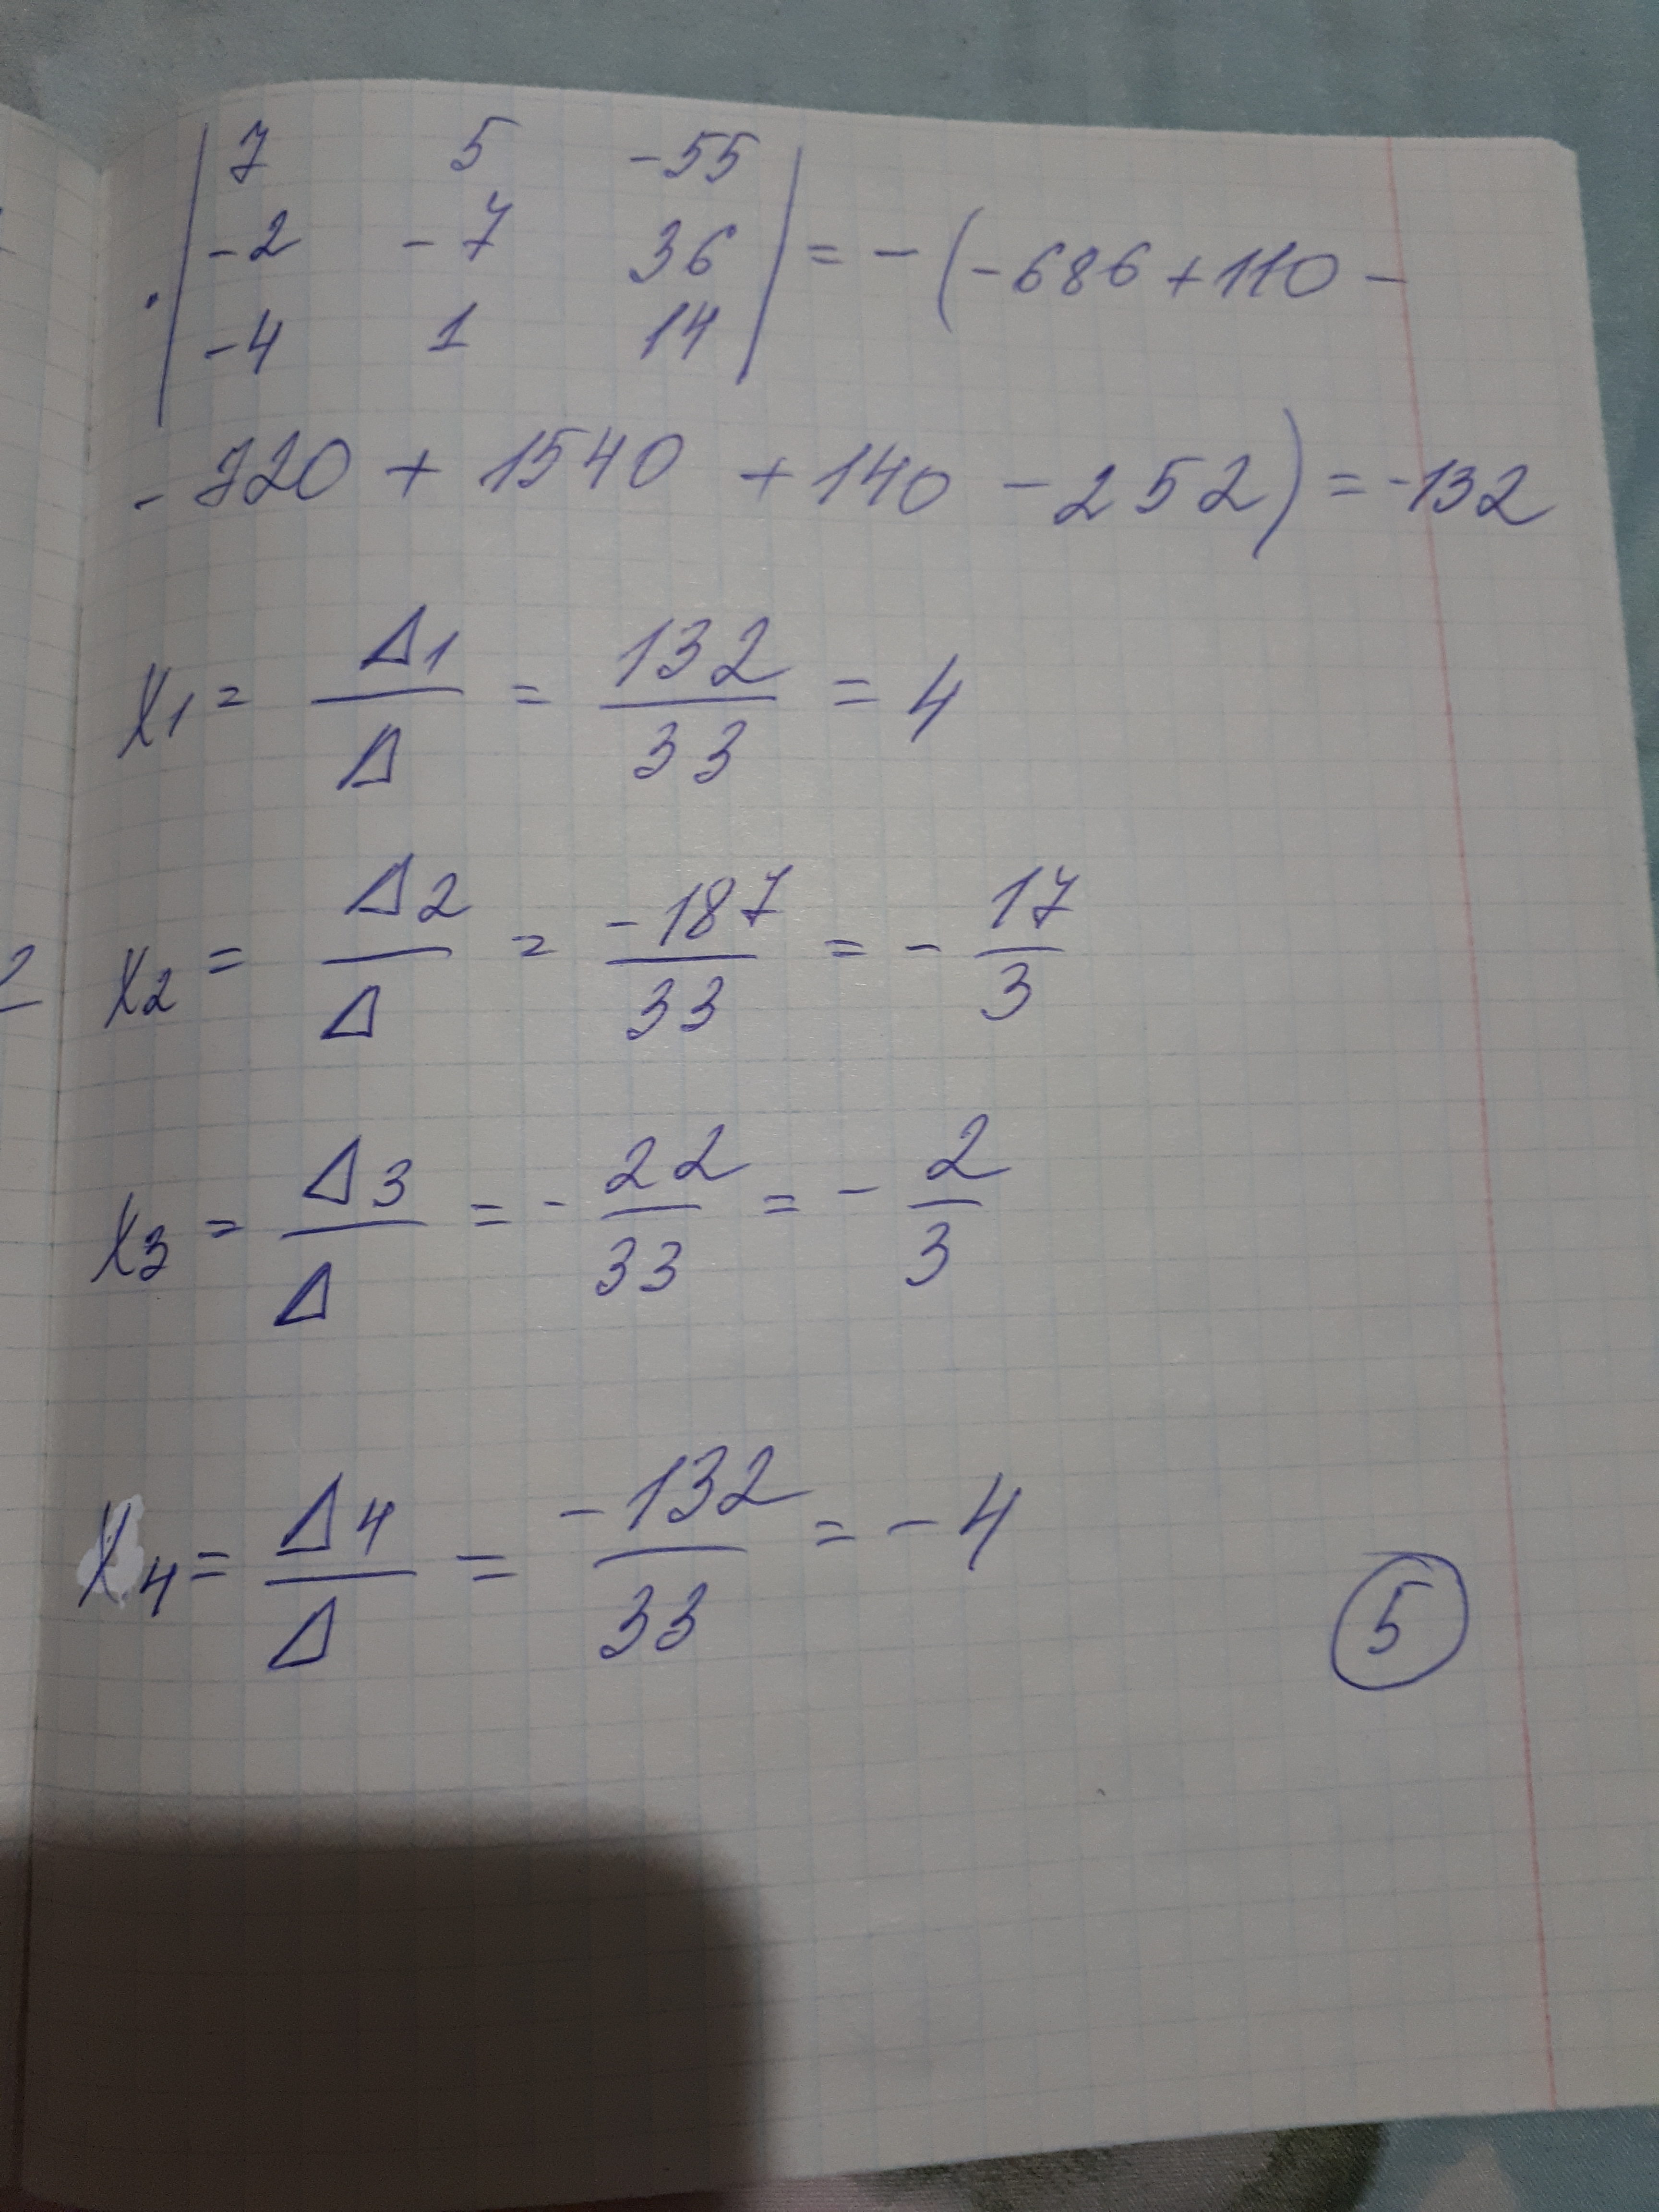 | 7 5 -55 |
| -2 -7 36 | = -(-686 + 110 -
· | -4 1 14 |
- 720 + 1540 + 140 - 252) = -132
x1 = Δ1/Δ = 132/33 = 4
x2 = Δ2/Δ = -187/33 = - 17/3
x3 = Δ3/Δ = - 22/33 = - 2/3
x4 = Δ4/Δ = -132/33 = -4
5
2